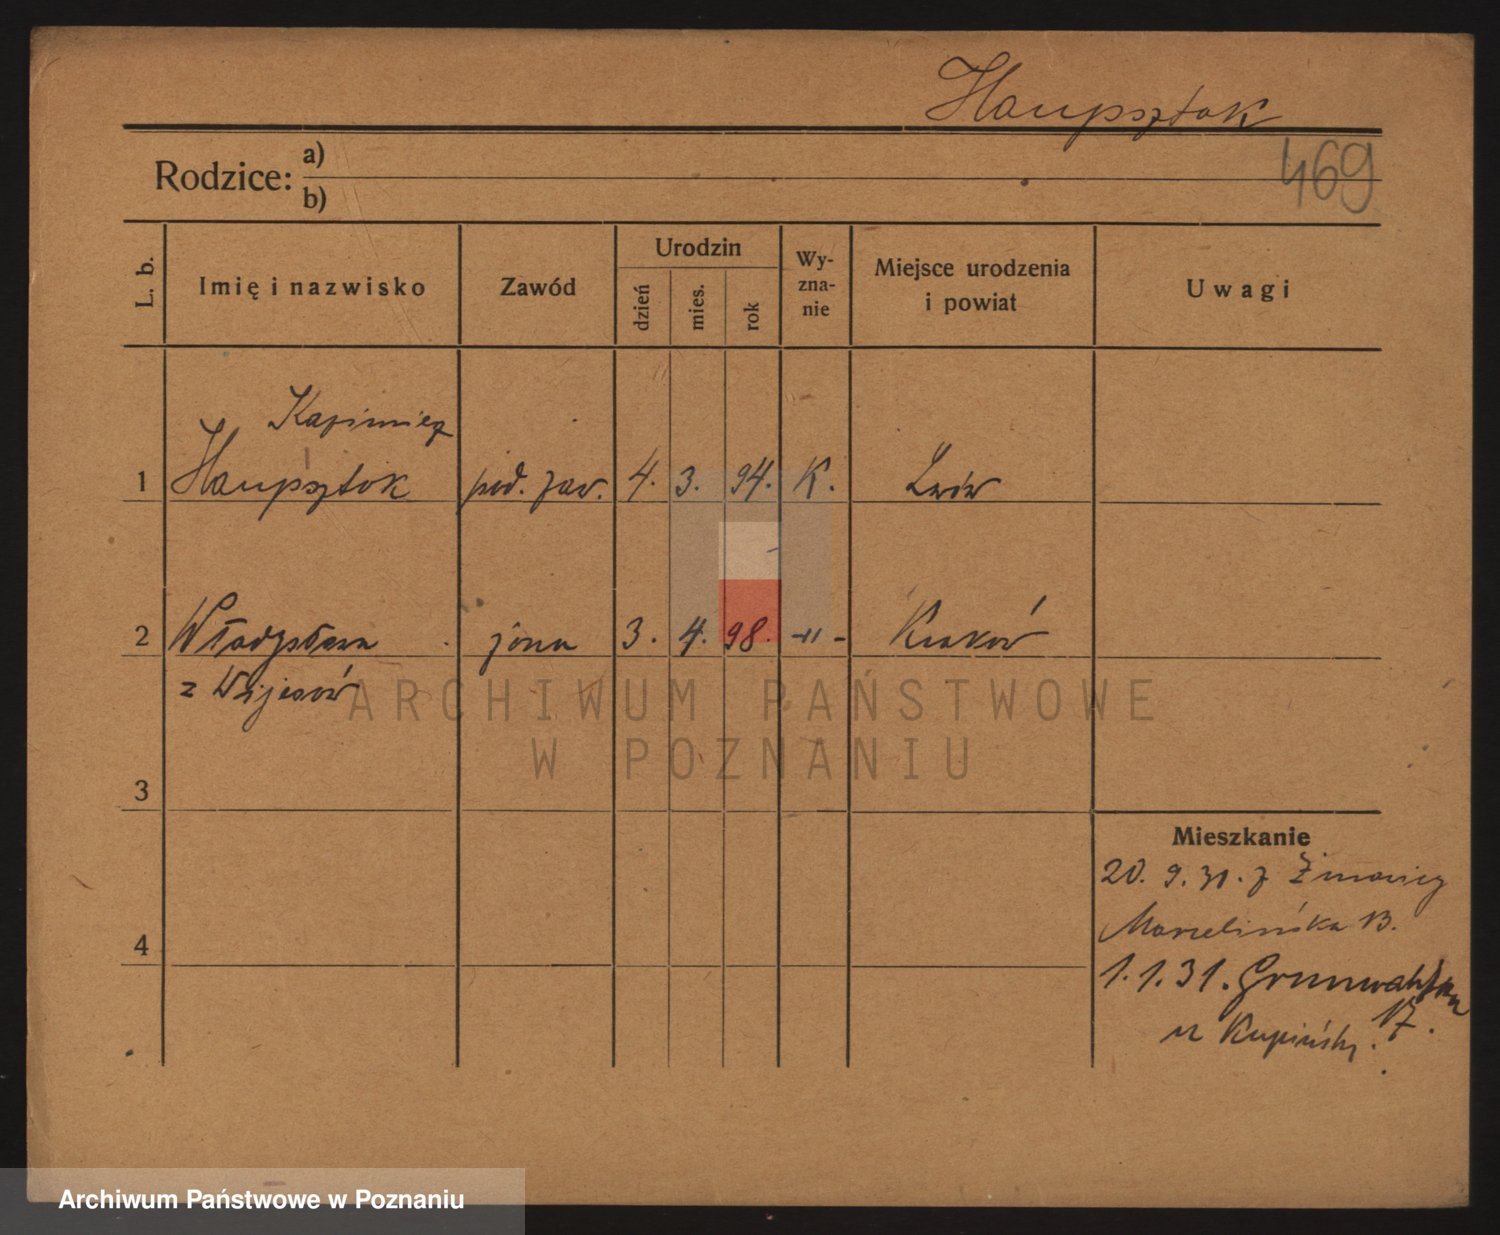 Haupsztok
469
Rodzice: a)
b)
L. b.
Imię i nazwisko
Zawód
Urodzin
dzień
mies.
rok
Wy-
zna-
nie
Miejsce urodzenia
i powiat
Uwagi
Kazimierz
1 Haupsztok pod. zaw. 4. 3. 94. K. Lwów
2 Władysława żona 3. 4. 98. -"- Kraków
z
ARCHIWUM PAŃSTWOWE
W POZNANIU
3
Mieszkanie
20. 9. 30. z
Marcelińska 13.
4
1. 1. 31. Grunwaldzka
17.
u Kupiński.
Archiwum Państwowe w Poznaniu